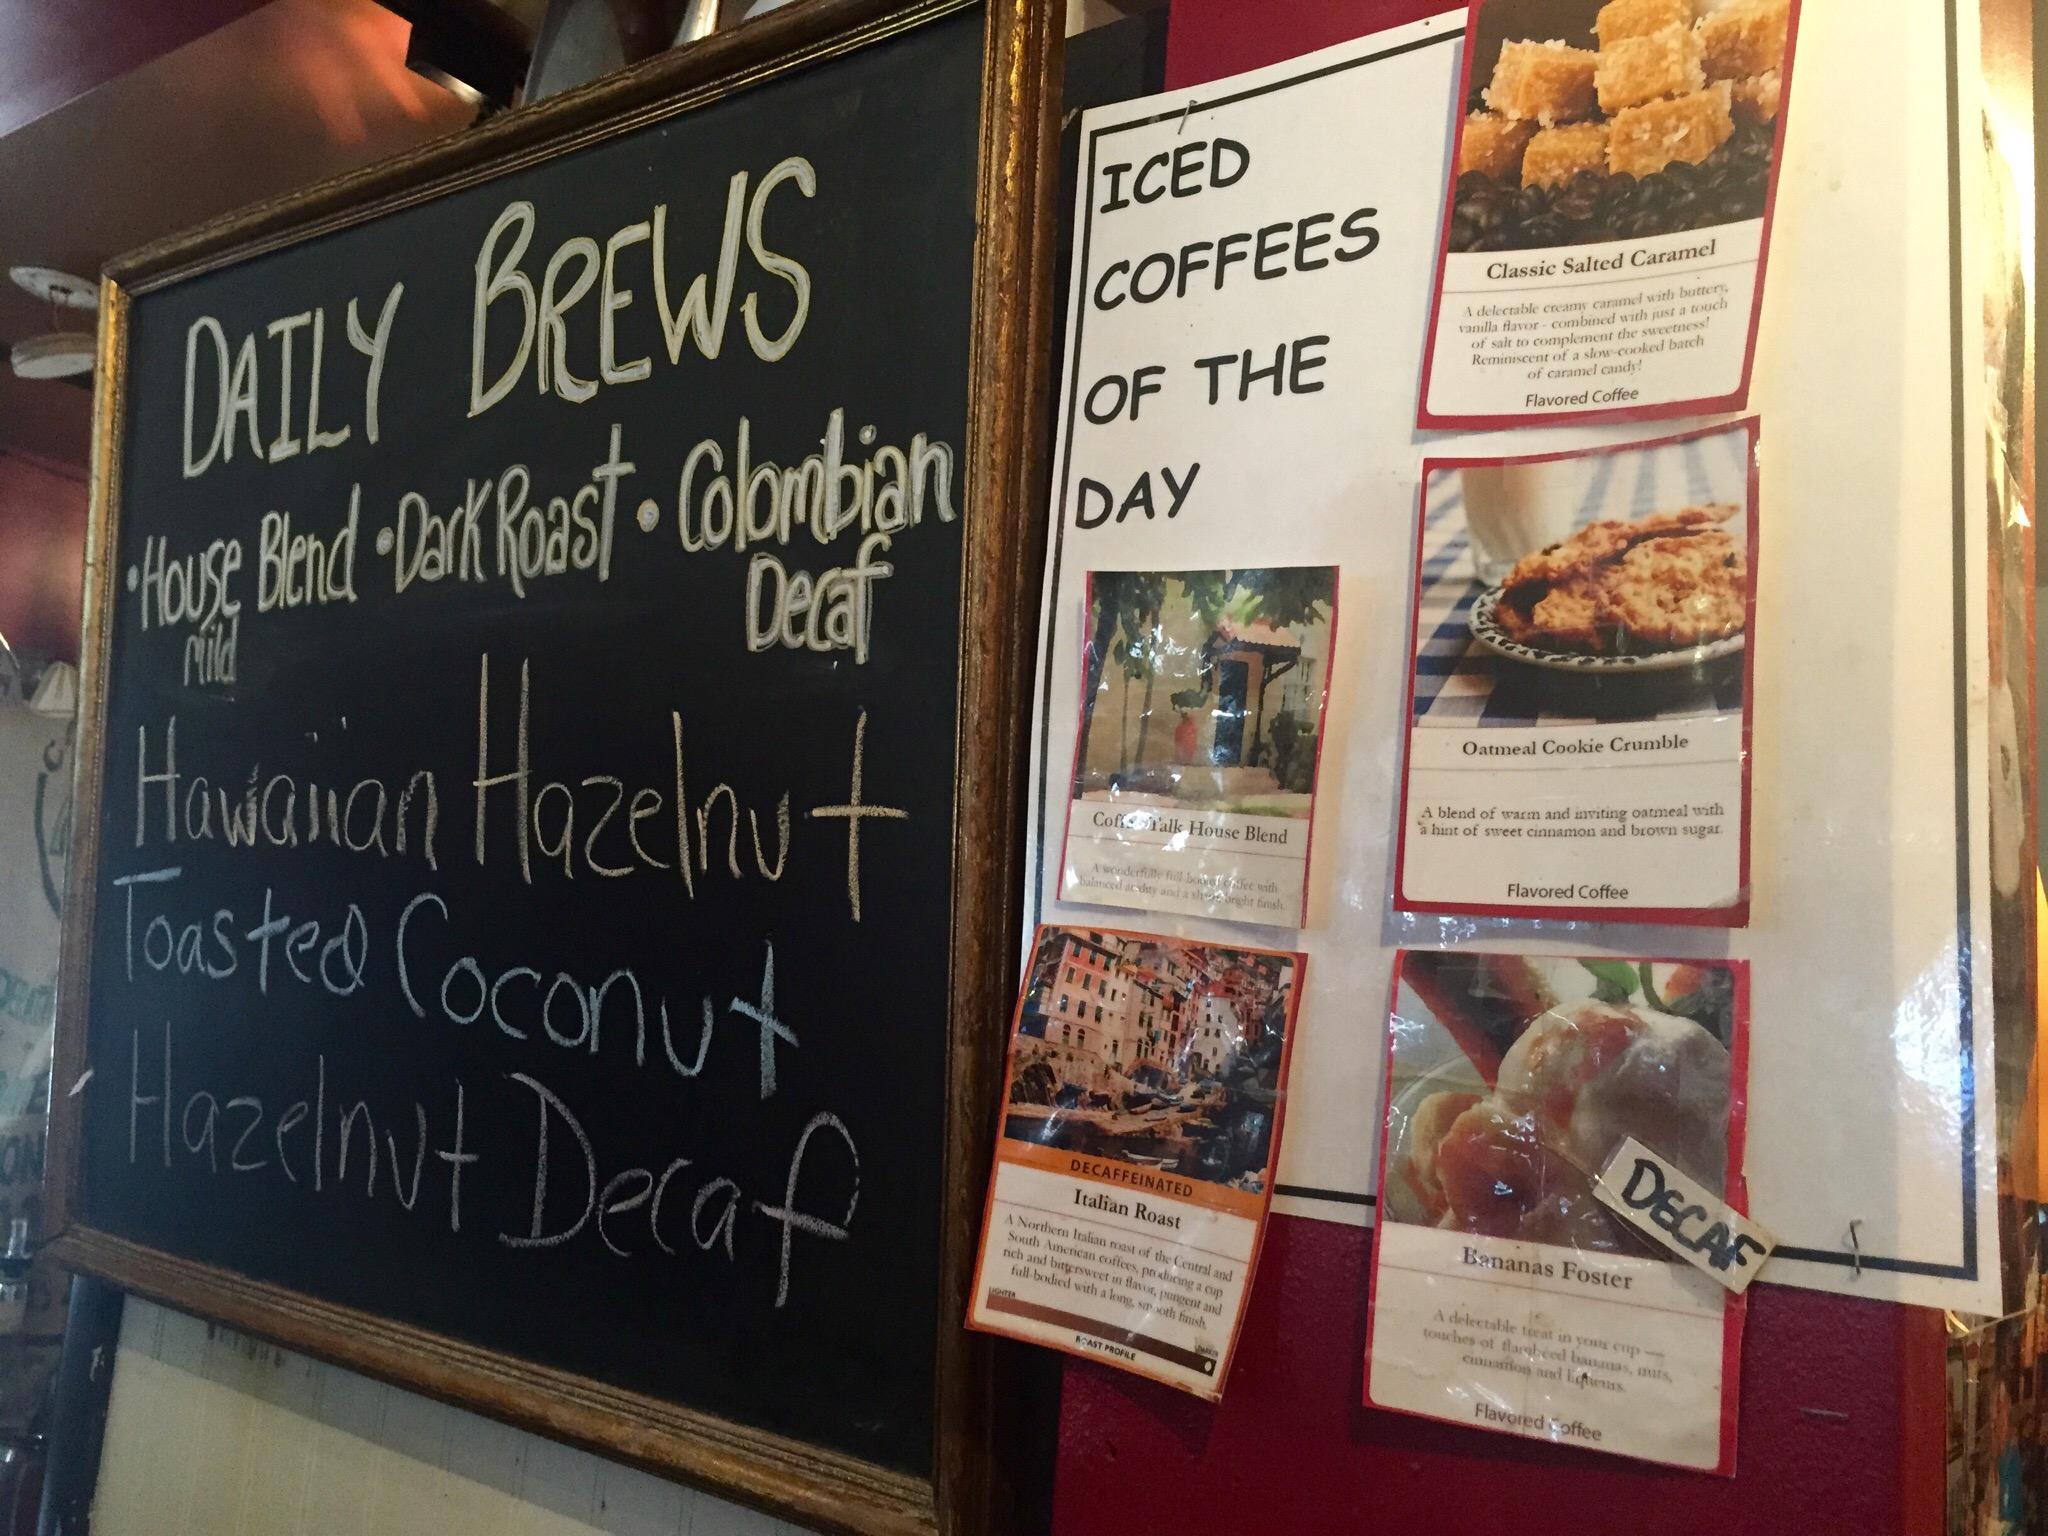 DAILY BREWS
• House Blend • Dark Roast • Colombian
mild
Decaf
Hawaiian Hazelnut
Toasted Coconut
Hazelnut Decaf
ICED
COFFEES
OF THE
DAY
Classic Salted Caramel
A delectable creamy caramel with buttery,
vanilla flavor - combined with just a touch
of salt to complement the sweetness!
Reminiscent of a slow-cooked batch
of caramel candy!
Flavored Coffee
Oatmeal Cookie Crumble
A blend of warm and inviting oatmeal with
a hint of sweet cinnamon and brown sugar.
Flavored Coffee
Coffee Talk House Blend
A wonderfully full bodied coffee with
balanced acidity and a bright finish.
DECAFFEINATED
Italian Roast
A Northern Italian roast of the Central and
South American coffees, producing a cup
rich and bittersweet in flavor, pungent and
full-bodied with a long, smooth finish.
LIGHTER
DARKER
ROAST PROFILE
DECAF
Bananas Foster
A delectable treat in your cup —
touches of flambeed bananas, nuts,
cinnamon and liqueurs.
Flavored Coffee